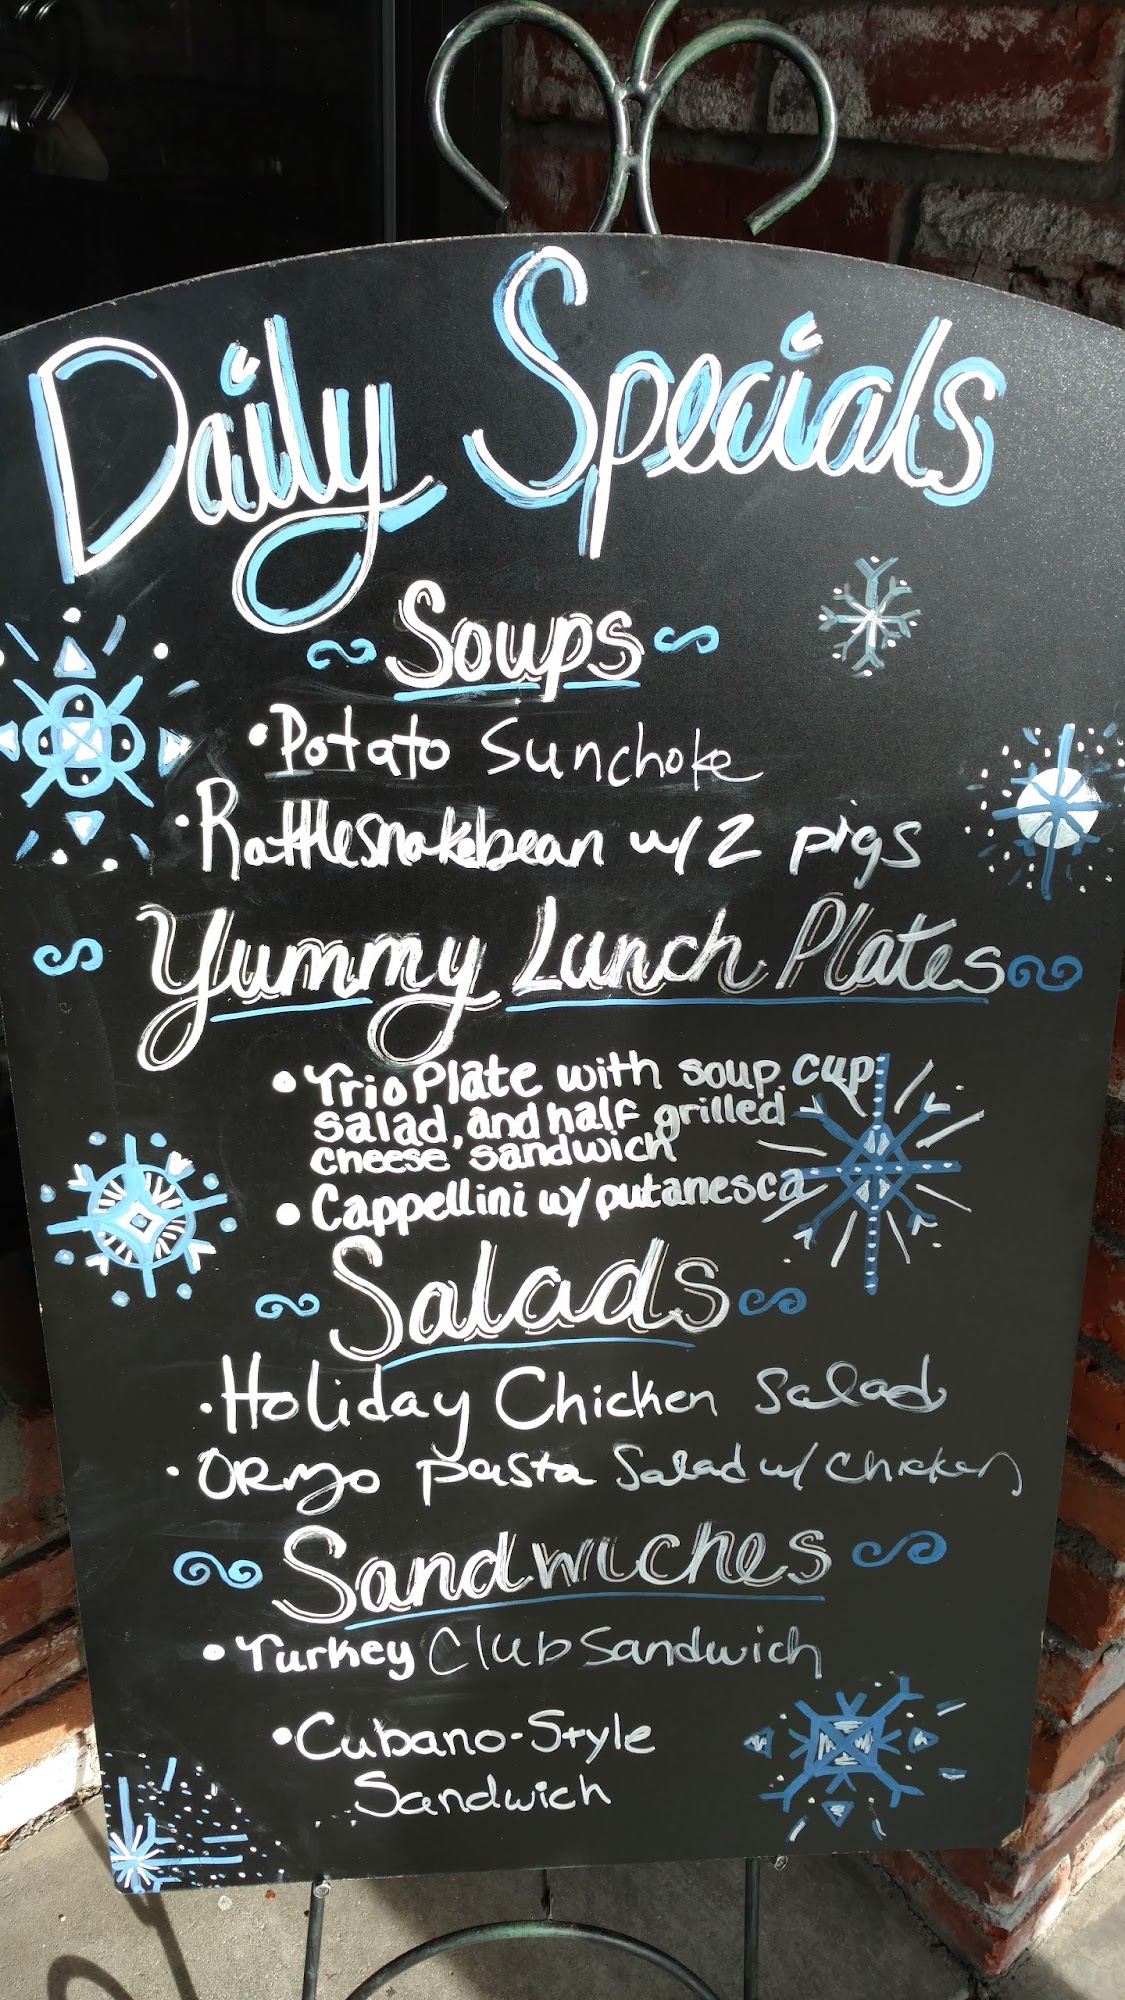 Daily Specials
Soups
• Potato Sunchoke
• Rattlesnakebean w/ 2 pigs
Yummy Lunch Plates
• Trio Plate with soup cup
salad, and half grilled
cheese sandwich
• Cappellini w/ putanesca
Salads
• Holiday Chicken Salad
• ORzo pasta Salad w/ chicken
Sandwiches
• Turkey Club Sandwich
• Cubano-Style
Sandwich